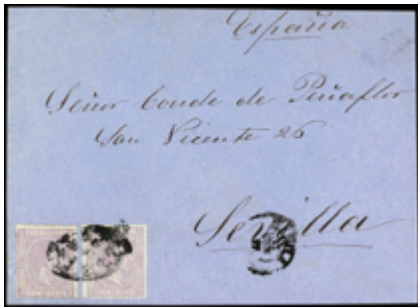 España
Señor Conde de Peñaflor
San Vicente 26
Sevilla